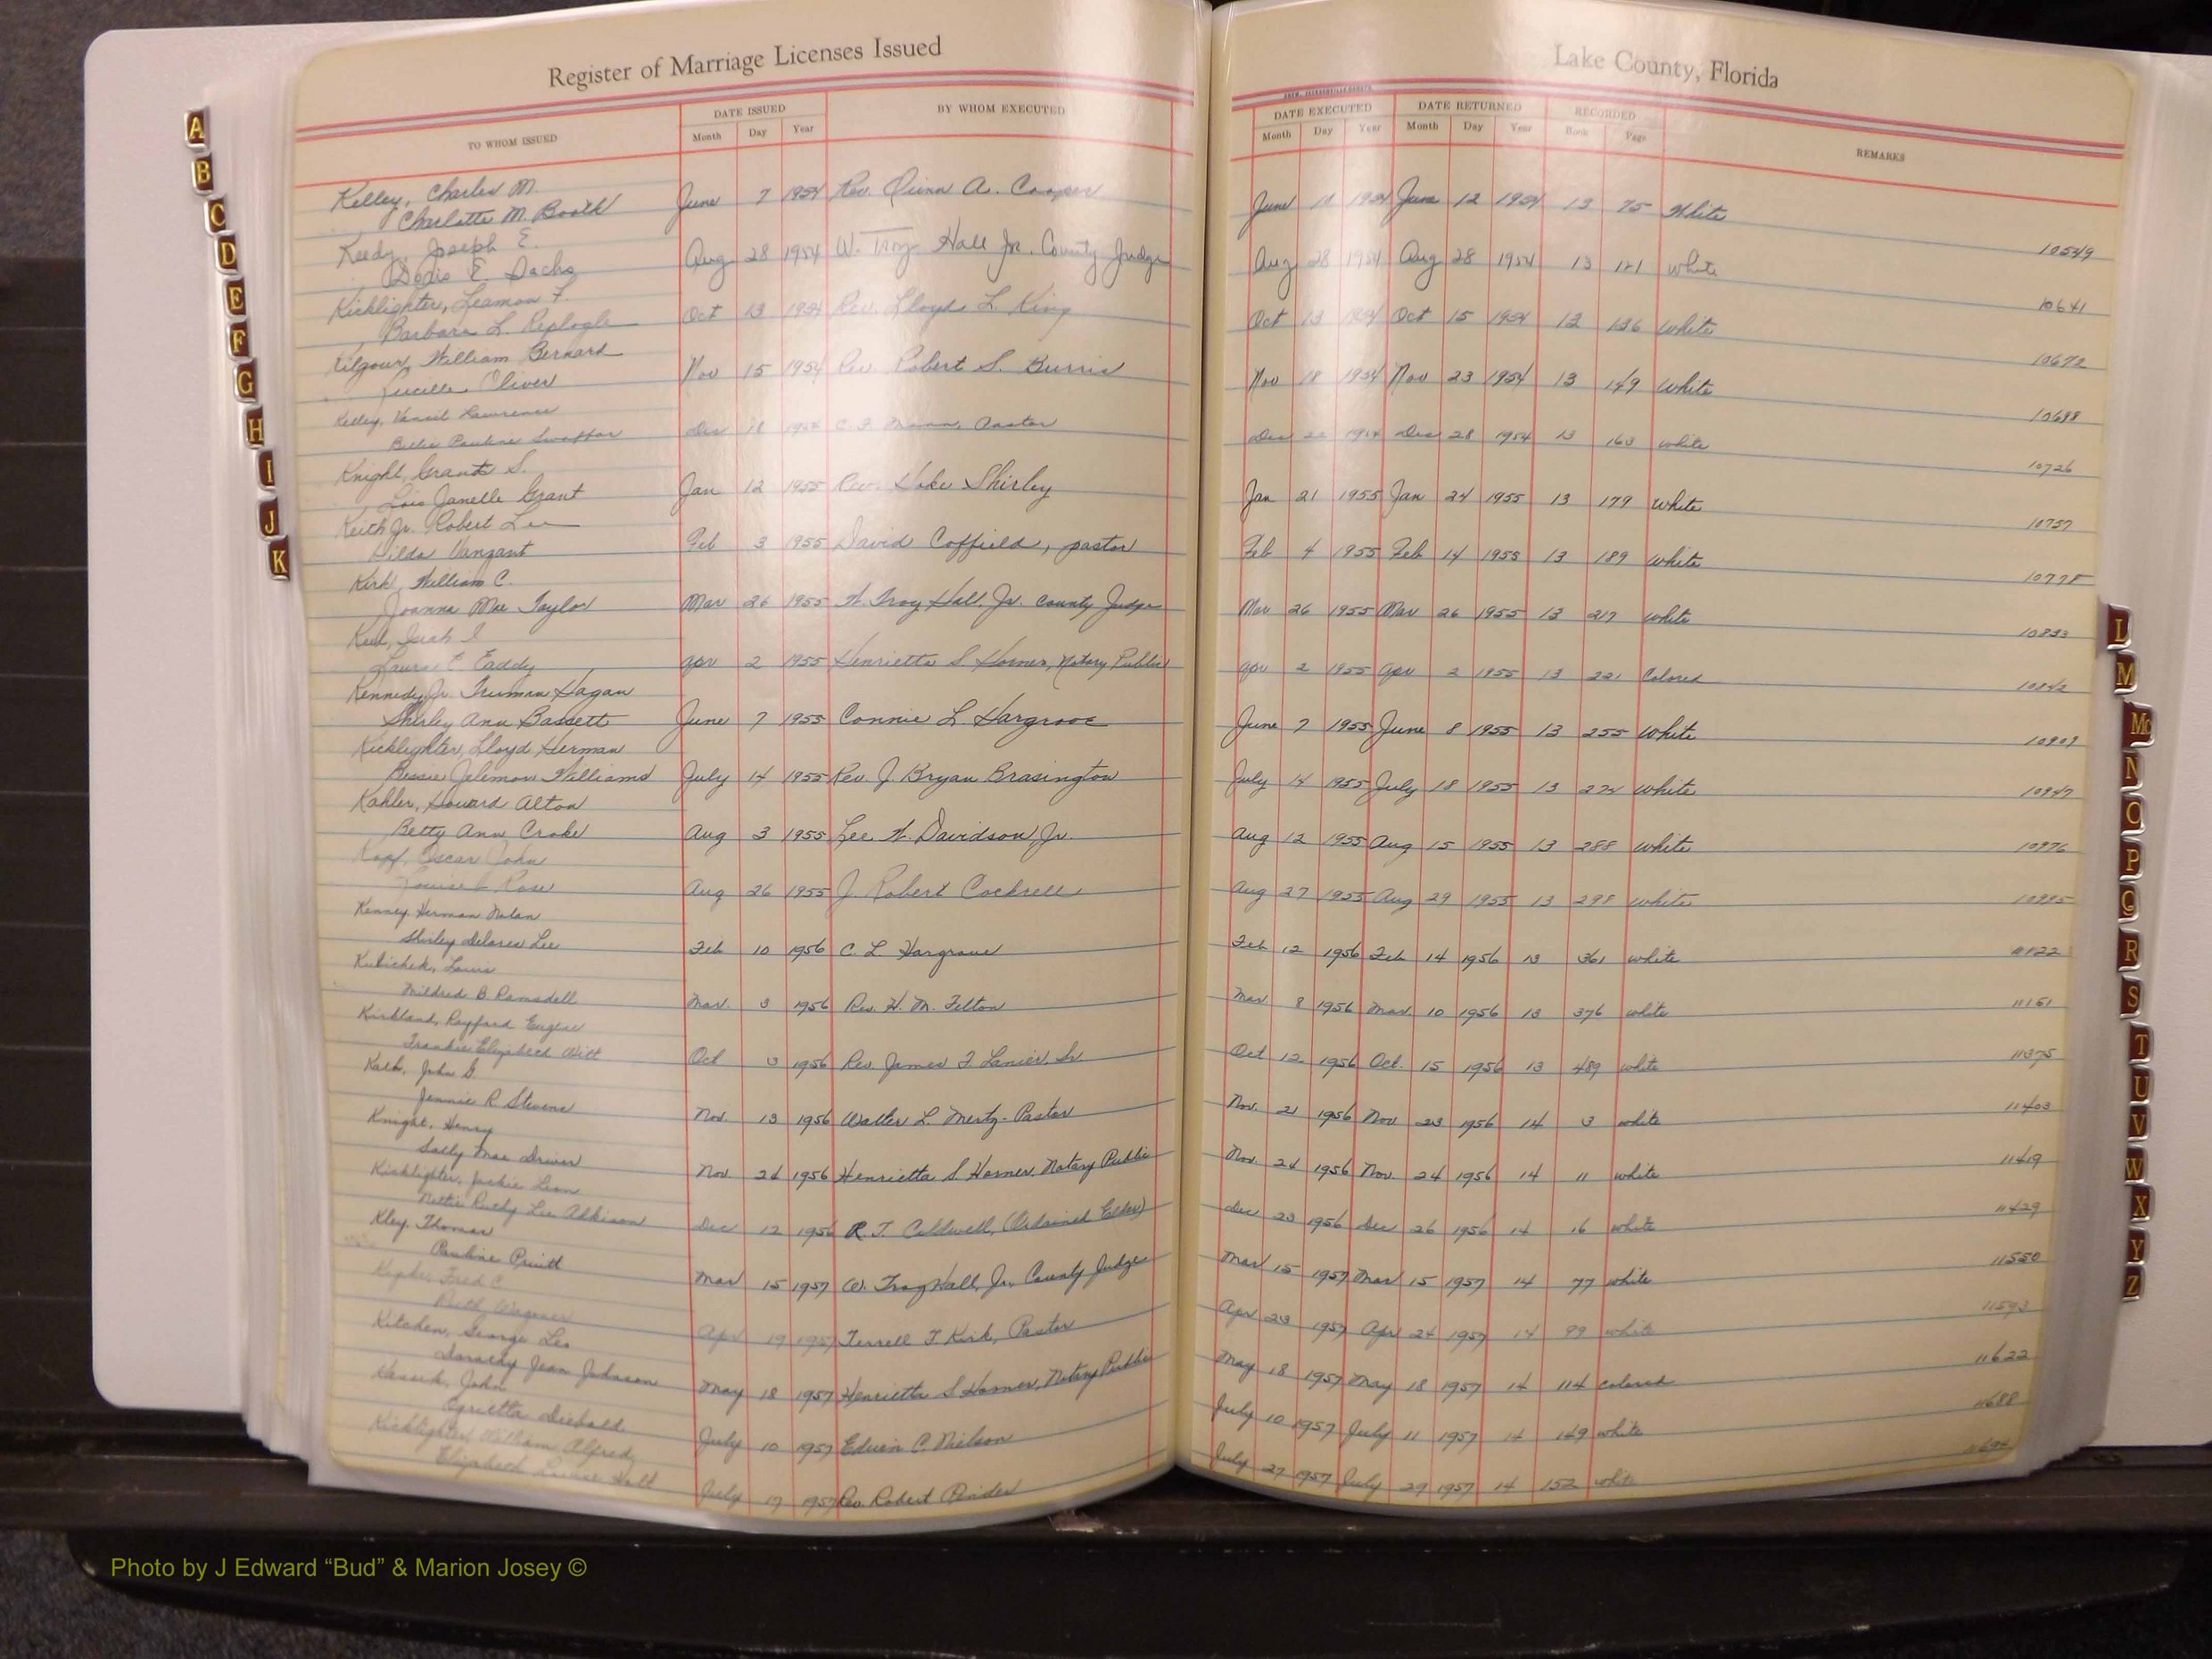 Register of Marriage Licenses Issued
Lake County, Florida
TO WHOM ISSUED
DATE ISSUED
Month Day Year
BY WHOM EXECUTED
DATE EXECUTED
Month Day Year
DATE RETURNED
Month Day Year
RECORDED
Book Page
REMARKS
Kelley, Charles M.
Charlotte M. Booth June 7 1954 Rev. Quinn A. Cooper June 11 1954 June 12 1954 13 75 White 10549
Keedy, Joseph E.
Doris E. Dachs Aug 28 1954 W. Troy Hall Jr. County Judge Aug 28 1954 Aug 28 1954 13 121 White 10641
Kicklighter, Leamon F.
Barbara L. Replogle Oct 13 1954 Rev. Lloyd L. King Oct 13 1954 Oct 15 1954 13 136 White 10672
Kilgour, William Bernard
Lucille Oliver Nov 15 1954 Rev. Robert S. Burris Nov 18 1954 Nov 23 1954 13 149 White 10698
Kelley, Lawrence
Billie Pauline Swaffar Dec 18 1954 Pastor Dec 22 1954 Dec 28 1954 13 163 White 10726
Knight, Grant S.
Lois Janelle Grant Jan 12 1955 Rev. Shirley Jan 21 1955 Jan 24 1955 13 179 White 10757
Keith Jr. Robert Lee
Hilda Vanzant Feb 3 1955 David Coffield, pastor Feb 4 1955 Feb 14 1955 13 189 White 10778
Kirk, William C.
Joanna Mae Taylor Mar 26 1955 W. Troy Hall, Jr. County Judge Mar 26 1955 Mar 26 1955 13 217 White 10833
Laura E. Eaddy Apr 2 1955 Henrietta S Horner, Notary Public Apr 2 1955 Apr 2 1955 13 221 Colored 10842
Kennedy, Jr. Truman Hagan
Shirley Ann Bassett June 7 1955 Connie L Hargrove June 7 1955 June 8 1955 13 255 White 10909
Kicklighter, Lloyd Herman
Bessie Williams July 14 1955 Rev. J Bryan Brasington July 14 1955 July 18 1955 13 274 White 10947
Kahler, Howard Alton
Betty Ann Croke Aug 3 1955 Lee W. Davidson, Jr. Aug 12 1955 Aug 15 1955 13 288 White 10976
Kopf, Oscar John
Louise Rose Aug 26 1955 J. Robert Cockrell Aug 27 1955 Aug 29 1955 13 298 White 10995
Kenney, Herman Nolan
Shirley Delores Lee Feb 10 1956 C. L. Hargrove Feb 12 1956 Feb 14 1956 13 361 white 11122
Kubichek, Louis
Mildred B Ramsdell Mar. 3 1956 Rev. H. M. Felton Mar 8 1956 Mar. 10 1956 13 376 white 11151
Kirkland, Rayford Eugene
Frankie Elizabeth Witt Oct 3 1956 Rev. James F. Lanier, Sr Oct 12 1956 Oct. 15 1956 13 489 white 11375
Kalb, John G.
Jennie R Stevens Nov. 13 1956 Walter L. Mertz - Pastor Nov. 21 1956 Nov 23 1956 14 3 white 11403
Knight, Henry
Sally Mae Driver Nov. 24 1956 Henrietta S Horner, Notary Public Nov. 24 1956 Nov. 24 1956 14 11 white 11419
Kicklighter, Jackie Leon
Nettie Ruthy Lee Alkinson Dec 12 1956 R. T. Caldwell, (Ordained Elder) Dec 23 1956 Dec 26 1956 14 16 white 11429
Kley, Thomas
Pauline Pruitt Mar 15 1957 W. Troy Hall, Jr., County Judge Mar 15 1957 Mar 15 1957 14 77 white 11550
Fred C.
Ruth Wagoner Apr 19 1957 Terrell T Kirk, Pastor Apr 23 1957 Apr 24 1957 14 99 white 11593
Kitchen, George Lee
Dorothy Jean Johnson May 18 1957 Henrietta S Horner, Notary Public May 18 1957 May 18 1957 14 114 colored 11622
John
Diebold July 10 1957 Edwin C. Nielson July 10 1957 July 11 1957 14 149 white 11688
Kicklighter, William Alfred
Elizabeth Louise Hall July 17 1957 Rev. Robert July 27 1957 July 29 1957 14 152 white
A
B
C
D
E
F
G
H
I
J
K
L
M
Mc
N
O
P
Q
R
S
T
U
V
W
X
Y
Z
Photo by J Edward “Bud” & Marion Josey ©